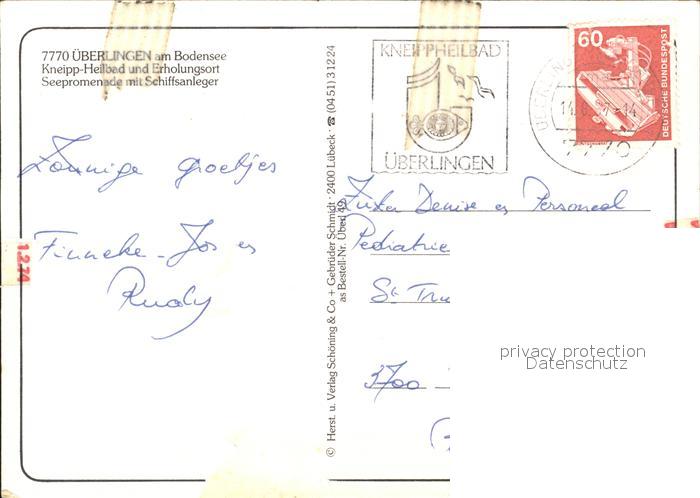 7770 ÜBERLINGEN am Bodensee
Kneipp-Heilbad und Erholungsort
Seepromenade mit Schiffsanleger
Zonnige groetjes
Finneke - Jos en
Rudy
1.2.74
© Herst. u. Verlag Schöning & Co + Gebrüder Schmidt · 2400 Lübeck · ☎ (04 51) 3 12 24
as Bestell-Nr. Überl 49
KNEIPPHEILBAD
ÜBERLINGEN
7770
60
DEUTSCHE BUNDESPOST
Zuster Denise en Personeel
Pediatrie
St Tru
3700 -
privacy protection
Datenschutz